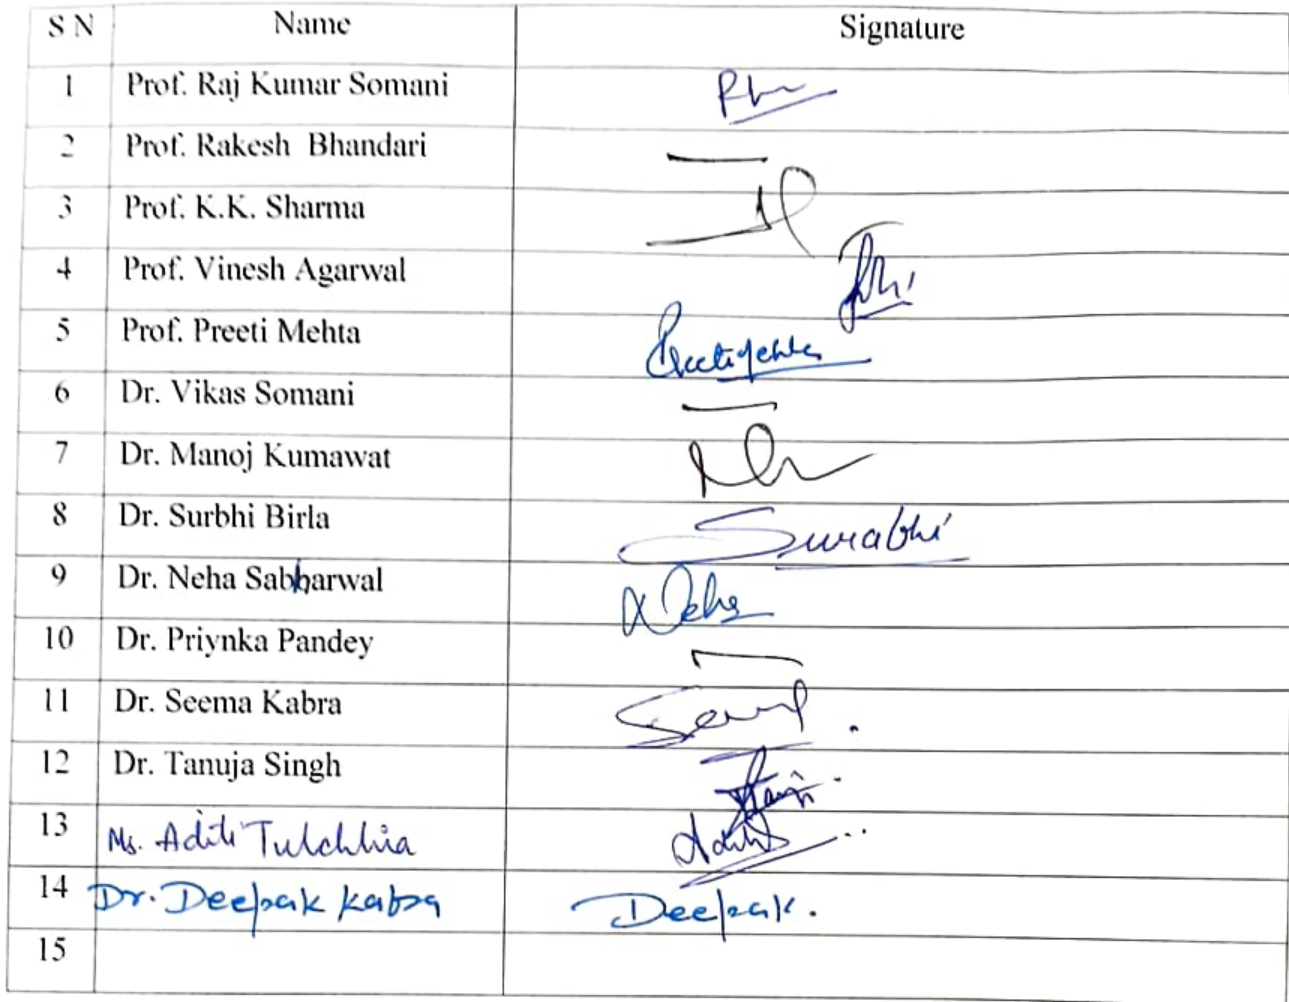 S N Name Signature
1 Prof. Raj Kumar Somani
2 Prof. Rakesh Bhandari
3 Prof. K.K. Sharma
4 Prof. Vinesh Agarwal
5 Prof. Preeti Mehta
6 Dr. Vikas Somani
7 Dr. Manoj Kumawat
8 Dr. Surbhi Birla Surabhi
9 Dr. Neha Sabharwal Neha
10 Dr. Priynka Pandey
11 Dr. Seema Kabra
12 Dr. Tanuja Singh
13 Ms. Aditi Tulchhia
14 Dr. Deepak Kabra Deepak.
15